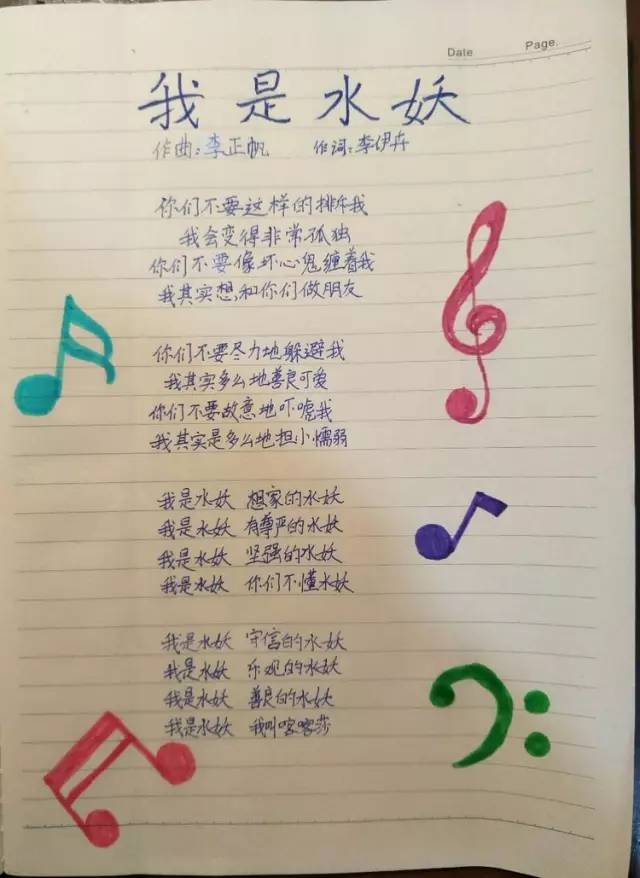 Date
Page.
我是水妖
作曲：李正帆 作词：李伊卉
你们不要这样的排斥我
我会变得非常孤独
你们不要像坏心鬼缠着我
我其实想和你们做朋友
你们不要尽力地躲避我
我其实多么地善良可爱
你们不要故意地吓唬我
我其实是多么地担小懦弱
我是水妖 想家的水妖
我是水妖 有尊严的水妖
我是水妖 坚强的水妖
我是水妖 你们不懂水妖
我是水妖 守信的水妖
我是水妖 乐观的水妖
我是水妖 善良的水妖
我是水妖 我叫喀喀莎